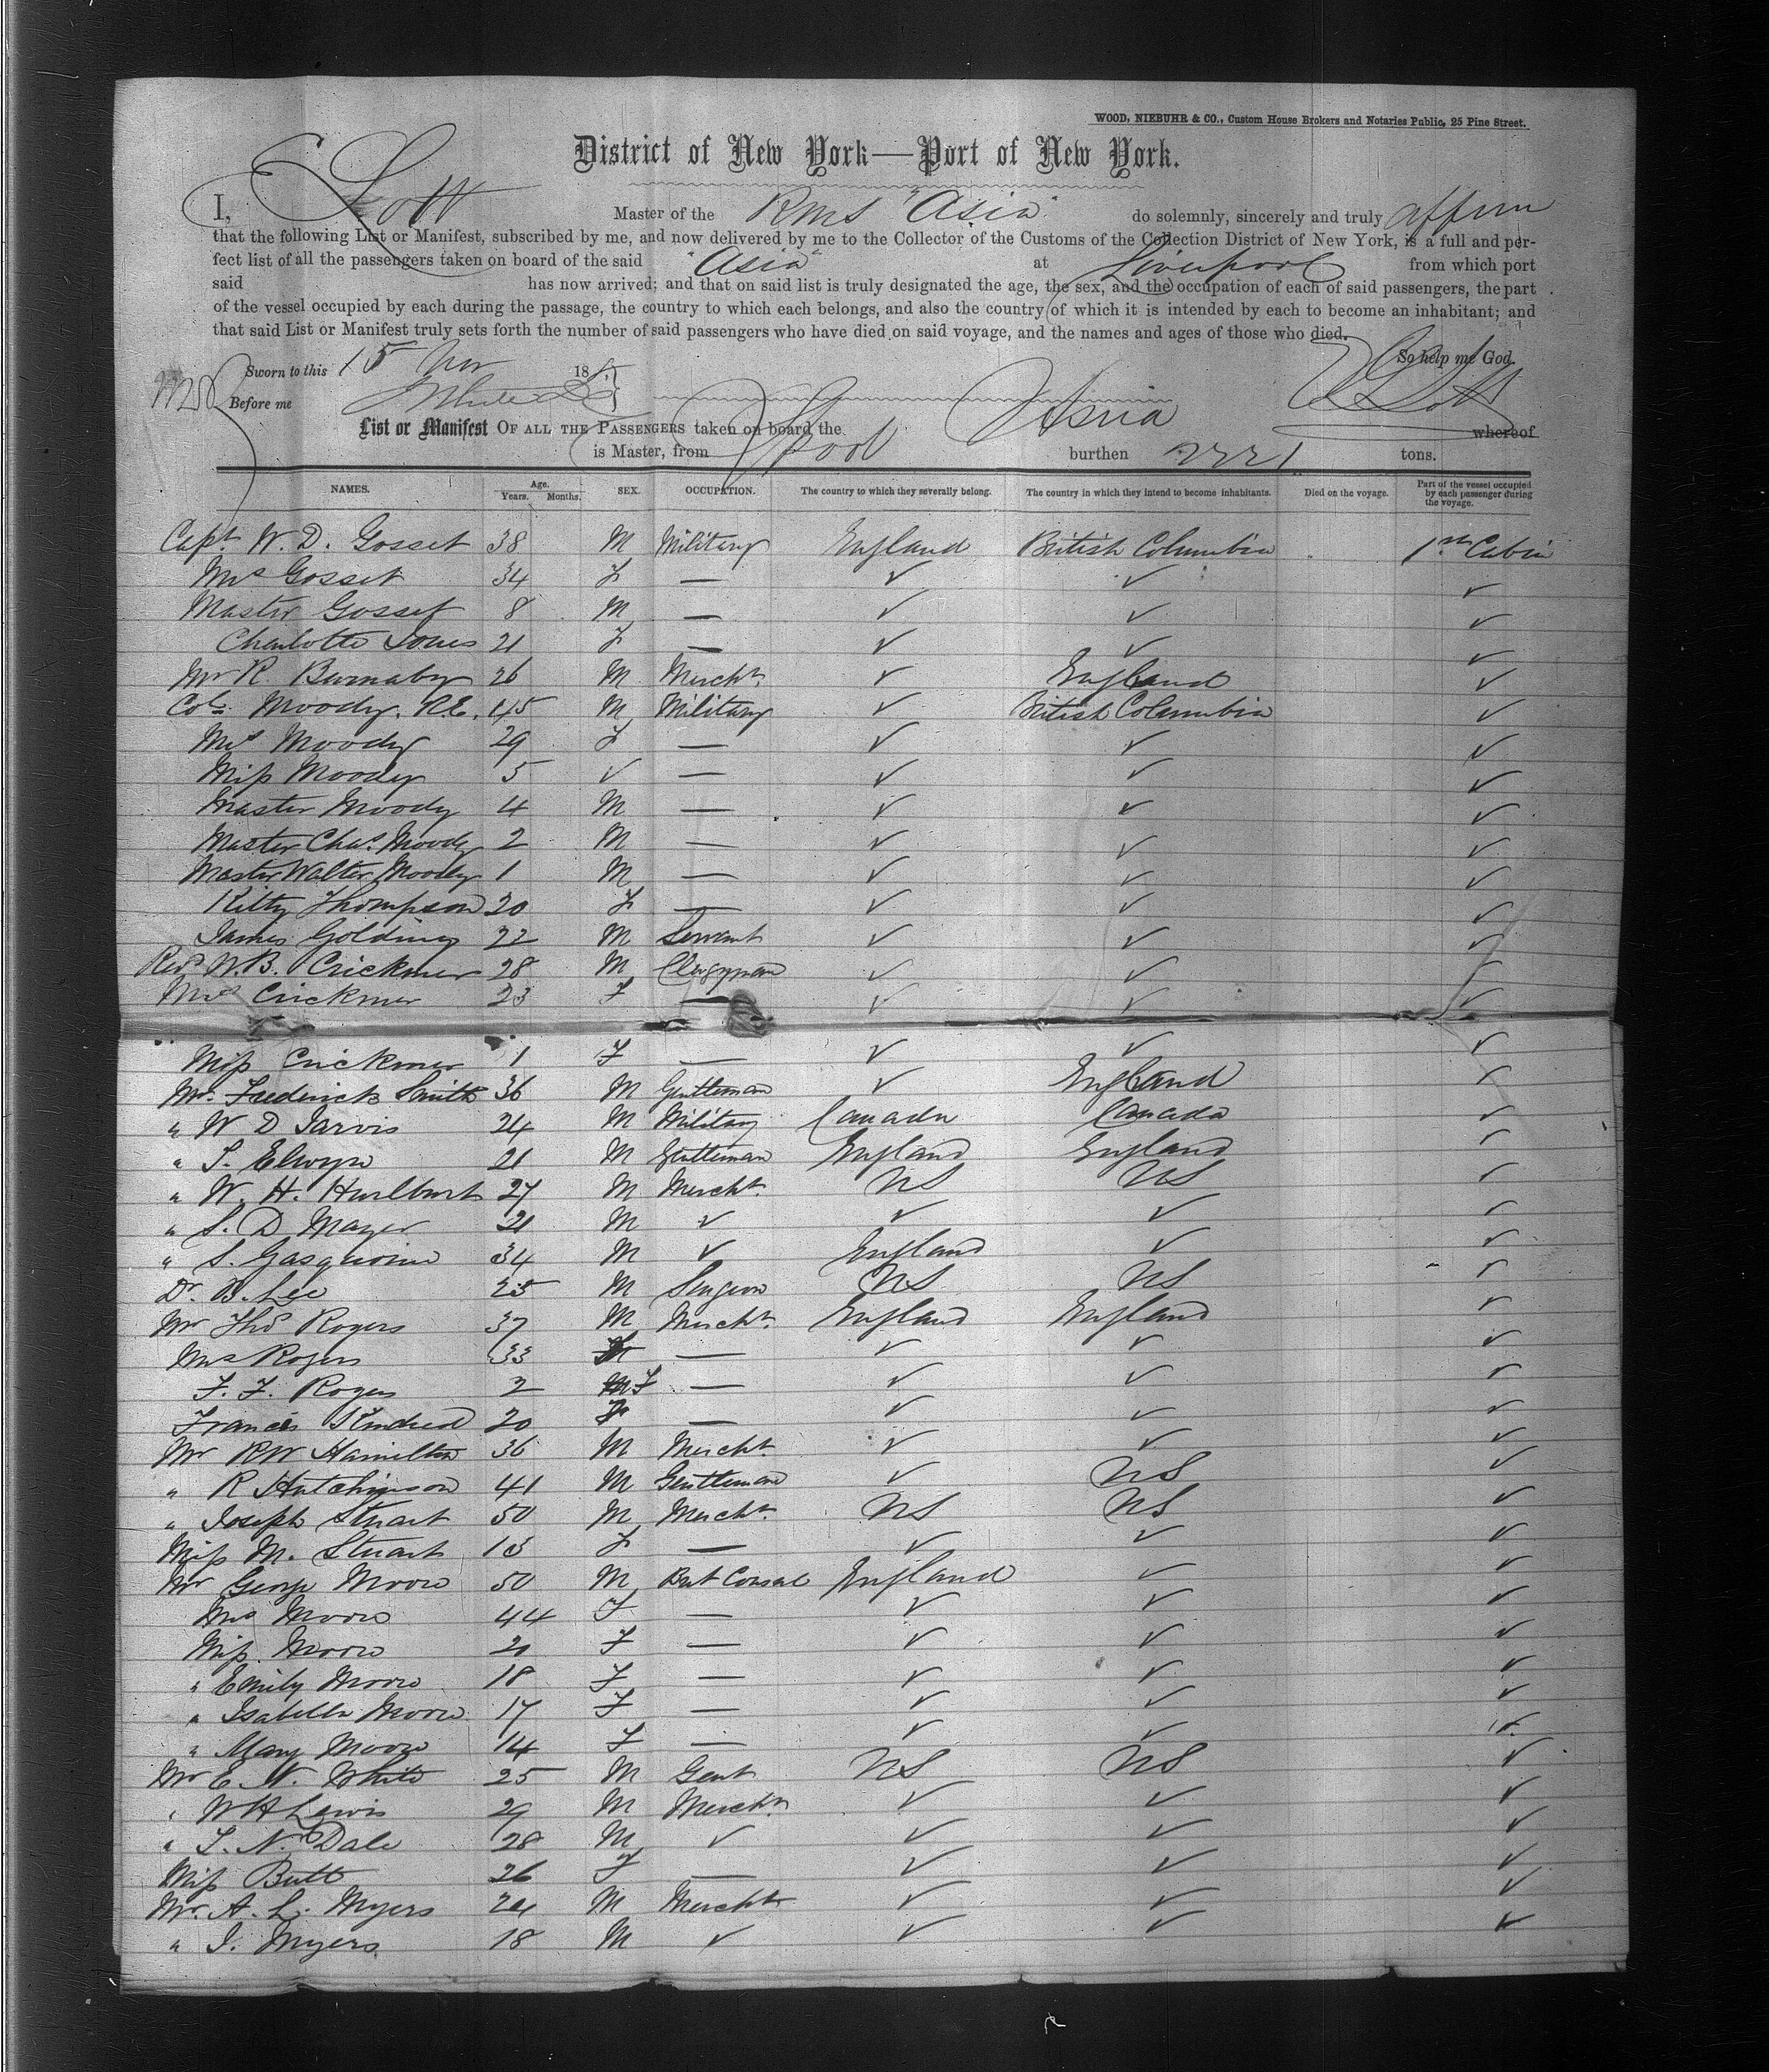 WOOD, NIEBUHR & CO., Custom House Brokers and Notaries Public, 25 Pine Street.
District of New York—Port of New York.
I, E Lott Master of the RMS "Asia" do solemnly, sincerely and truly affirm
that the following List or Manifest, subscribed by me, and now delivered by me to the Collector of the Customs of the Collection District of New York, is a full and per-
fect list of all the passengers taken on board of the said "Asia" at Liverpool from which port
said has now arrived; and that on said list is truly designated the age, the sex, and the occupation of each of said passengers, the part
of the vessel occupied by each during the passage, the country to which each belongs, and also the country of which it is intended by each to become an inhabitant; and
that said List or Manifest truly sets forth the number of said passengers who have died on said voyage, and the names and ages of those who died.
So help me God.
Sworn to this 15 Nov 18
Before me E Lott
List or Manifest OF ALL THE PASSENGERS taken on board the Asia whereof
is Master, from Lpool burthen 2221 tons.
NAMES. Age. Years. Months. SEX. OCCUPATION. The country to which they severally belong. The country in which they intend to become inhabitants. Died on the voyage. Part of the vessel occupied by each passenger during the voyage.
Capt. W. D. Gosset 38 M Military England British Columbia 1st Cabin
Mrs Gosset 34 F — ✓ ✓ ✓
Master Gosset 8 M — ✓ ✓ ✓
Charlotte Jones 21 F — ✓ ✓ ✓
Mr R. Burnaby 26 M Mercht. ✓ England ✓
Col. Moody. R.E. 45 M Military ✓ British Columbia ✓
Mrs Moody 29 F — ✓ ✓ ✓
Miss Moody 5 ✓ — ✓ ✓ ✓
Master Moody 4 M — ✓ ✓ ✓
Master Chas. Moody 2 M — ✓ ✓ ✓
Master Walter Moody 1 M — ✓ ✓ ✓
Kitty Thompson 20 F — ✓ ✓ ✓
James Golding 22 M Servant ✓ ✓ ✓
Revd W. B. Crickmer 28 M Clergyman ✓ ✓ ✓
Mrs Crickmer 23 F — ✓ ✓ ✓
Miss Crickmer 1 F — ✓ ✓ ✓
Mr. Frederick Smith 36 M Gentleman ✓ England ✓
" W D Jarvis 24 M Military Canada Canada ✓
" T. Elwyn 21 M Gentleman England England ✓
" W. H. Hurlburt 27 M Mercht. US US ✓
" S. D. Mayer 21 M ✓ ✓ ✓ ✓
" S. Gasquoine 34 M ✓ England ✓ ✓
Dr. B. Lee 25 M Surgeon US US ✓
Mr Thos Rogers 37 M Mercht. England England ✓
Mrs Rogers 33 F — ✓ ✓ ✓
F. F. Rogers 2 F — ✓ ✓ ✓
Francis Kindred 20 F — ✓ ✓ ✓
Mr RW Hamilton 36 M Mercht. ✓ ✓ ✓
" R Hutchinson 41 M Gentleman ✓ US ✓
" Joseph Stuart 50 M Mercht. US US ✓
Miss M. Stuart 13 F — ✓ ✓ ✓
Mr George Moore 50 M Brit Consul England ✓ ✓
Mrs Moore 44 F — ✓ ✓ ✓
Miss Moore 20 F — ✓ ✓ ✓
" Emily Moore 18 F — ✓ ✓ ✓
" Isabella Moore 17 F — ✓ ✓ ✓
" Mary Moore 14 F — ✓ ✓ ✓
Mr E. N. White 25 M Gent US US ✓
" W H Lewis 29 M Mercht. ✓ ✓ ✓
" T. N. Dale 28 M ✓ ✓ ✓ ✓
Miss Butt 26 F — ✓ ✓ ✓
Mr. A. L. Myers 24 M Mercht ✓ ✓ ✓
" I. Myers 18 M ✓ ✓ ✓ ✓